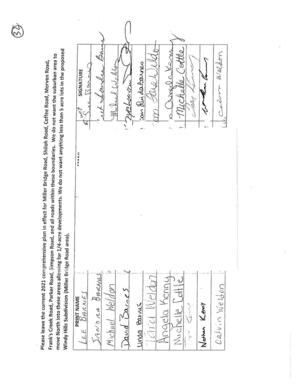 34
Please leave the current 2021 comprehensive plan in effect for Miller Bridge Road, Shiloh Road, Coffee Road, Morven Road,
Frank's Creek Road, Parker Road, Simpson Road, and all roads within these boundaries. We do not want the suburban area to
move North into these areas allowing for 1/4 acre developments. We do not want anything less than 5 acre lots in the proposed
Windy Hills Subdivision (Miller Bridge Road area).
PRINT NAME SIGNATURE
LEE BARNES
SANDRA BARNES
Michael Weldon Michael Weldon
David Barnes
Linda Barnes
Weldon
Angela Kenny Angela Kenny
Michelle Cottle Michelle Cottle
Nathan Kenny
Calvin Weldon Calvin Weldon